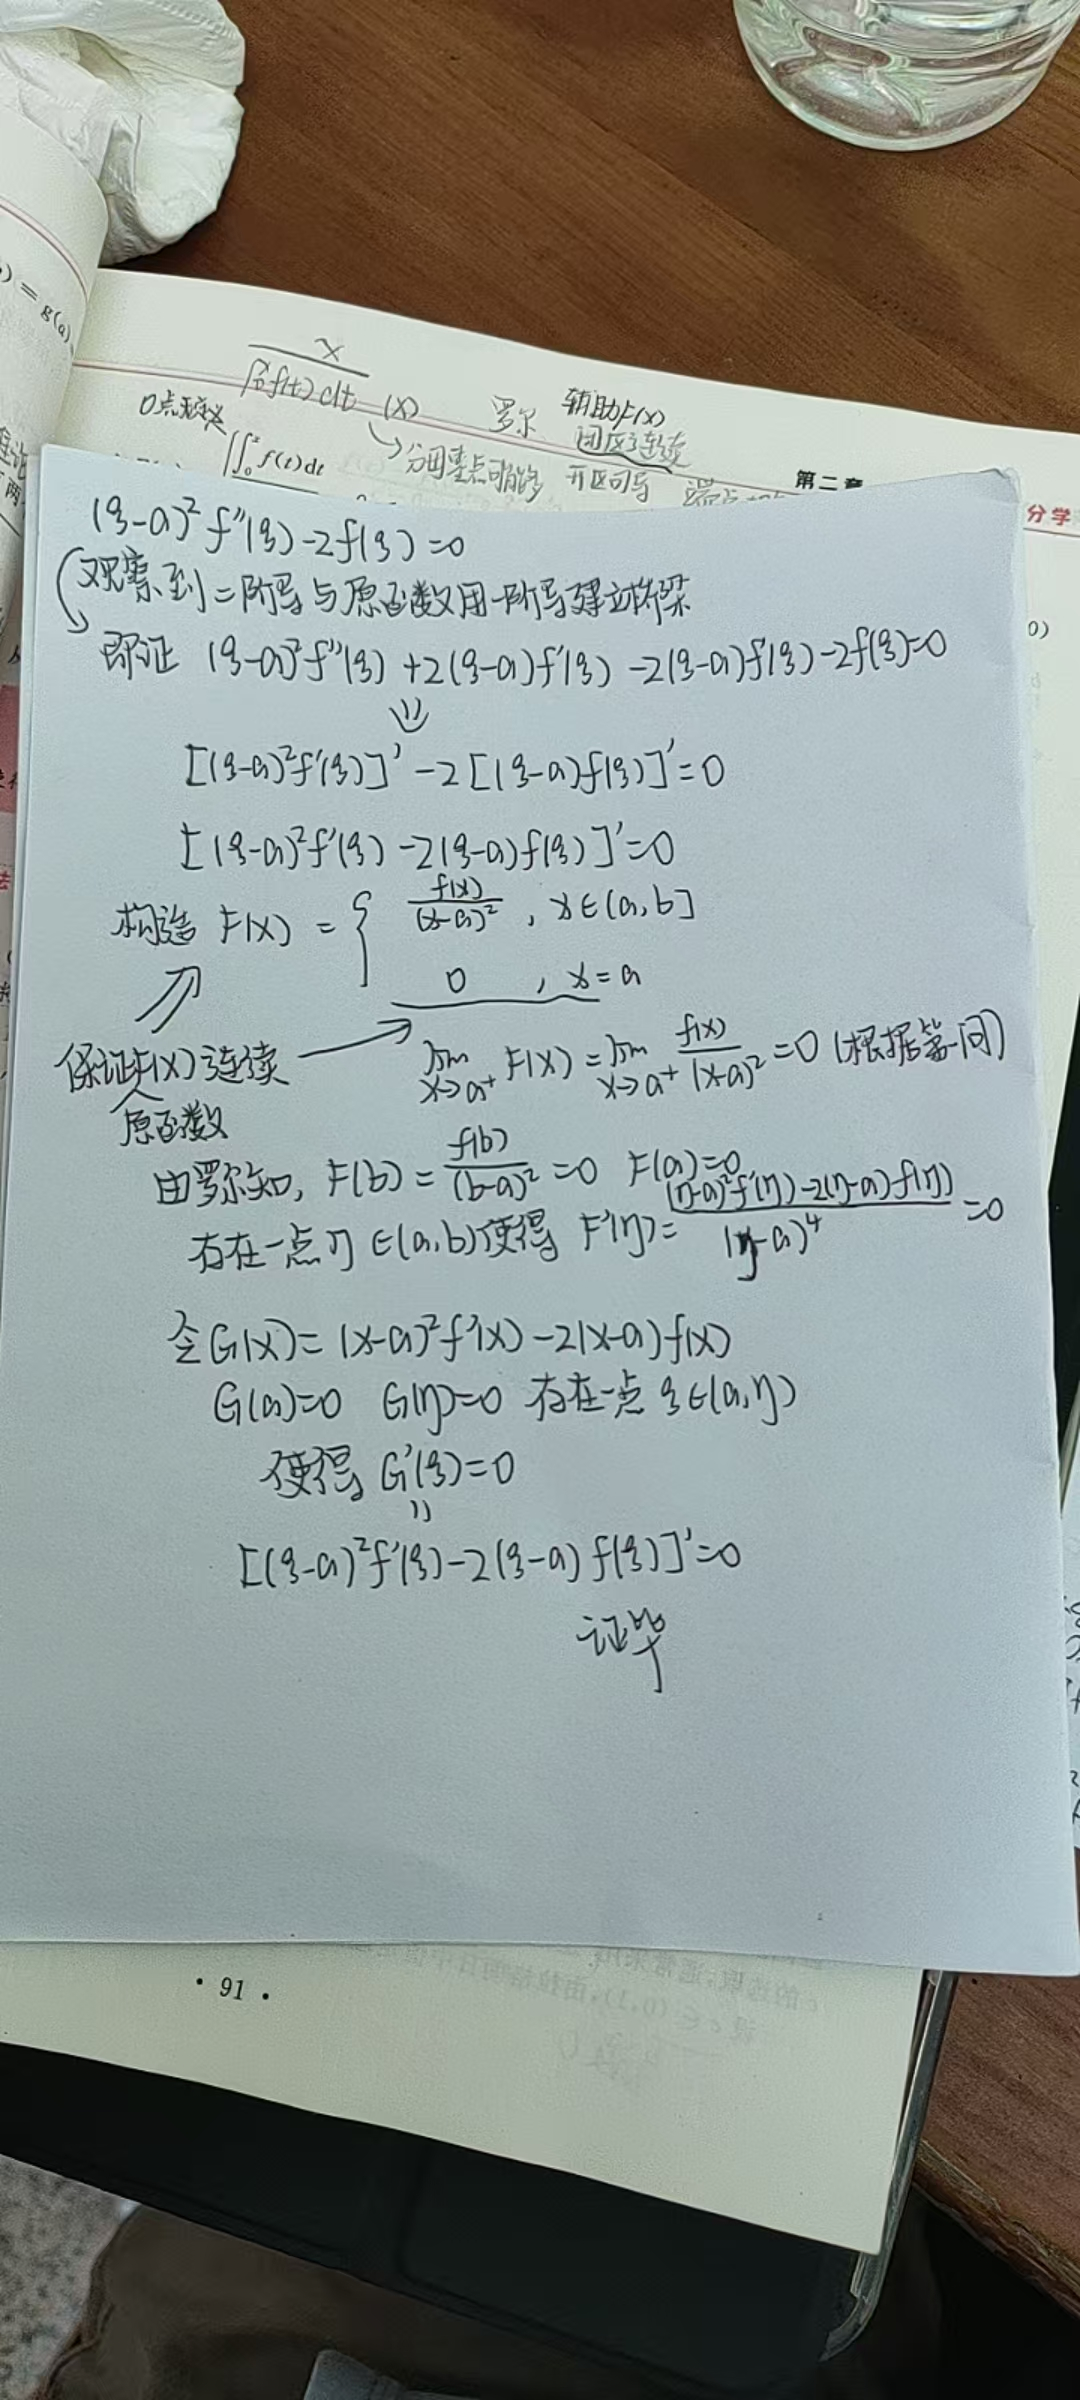 ) = g(a)
x
∫₀ˣf(t)dt (x) 罗尔 辅助F(x)
0点无定义 闭区间连续
∫∫₀ˣ f(t)dt 开区间可导
第二章
分学
0)
(ξ-a)²f''(ξ)-2f(ξ)=0
观察到二阶导与原函数用一阶导建立桥梁
即证 (ξ-a)²f''(ξ)+2(ξ-a)f'(ξ)-2(ξ-a)f'(ξ)-2f(ξ)=0
[(ξ-a)²f'(ξ)]'-2[(ξ-a)f(ξ)]'=0
[(ξ-a)²f'(ξ)-2(ξ-a)f(ξ)]'=0
构造 F(x) = { f(x)/(x-a)², x∈(a,b]
0, x=a
保证F(x)连续
原函数
lim x→a⁺ F(x) = lim x→a⁺ f(x)/(x-a)² =0 (根据第一问)
由罗尔知, F(b)=f(b)/(b-a)²=0 F(a)=0
存在一点η∈(a,b)使得 F'(η)=(η-a)²f'(η)-2(η-a)f(η)/(η-a)⁴=0
令G(x)=(x-a)²f'(x)-2(x-a)f(x)
G(a)=0 G(η)=0 存在一点ξ∈(a,η)
使得G'(ξ)=0
[(ξ-a)²f'(ξ)-2(ξ-a)f(ξ)]'=0
证毕
· 91 ·